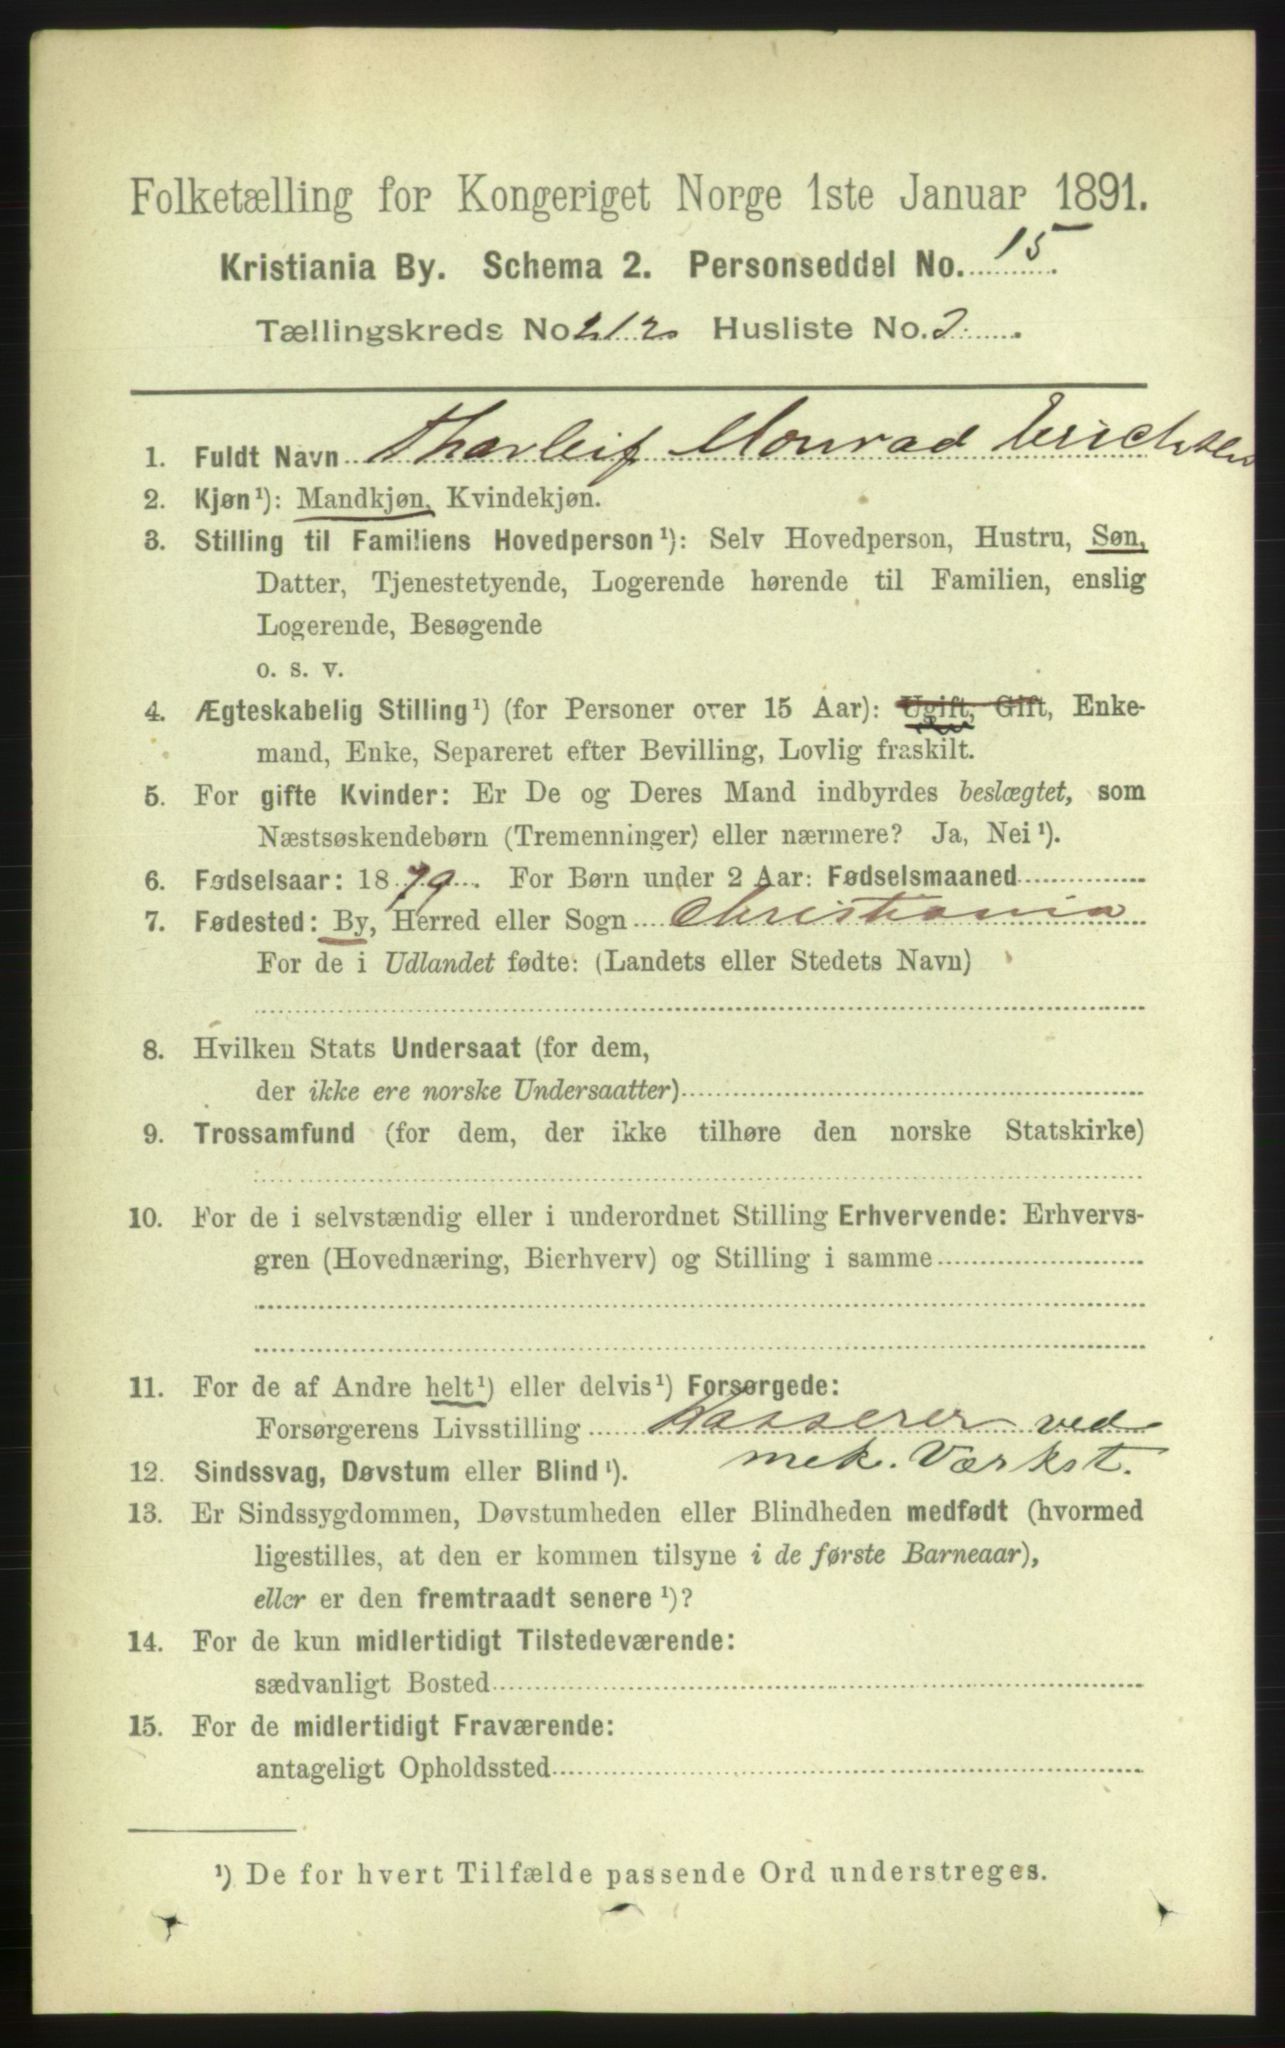 Folketælling for Kongeriget Norge 1ste Januar 1891.
Kristiania By. Schema 2. Personseddel No. 15.
Tællingskreds No. 212 Husliste No. 2.
1. Fuldt Navn Thorleif Monrad Erichsen
2. Kjøn¹): Mandkjøn, Kvindekjøn.
3. Stilling til Familiens Hovedperson¹): Selv Hovedperson, Hustru, Søn,
Datter, Tjenestetyende, Logerende hørende til Familien, enslig
Logerende, Besøgende
o. s. v.
4. Ægteskabelig Stilling¹) (for Personer over 15 Aar): Ugift, Gift, Enke-
mand, Enke, Separeret efter Bevilling, Lovlig fraskilt.
5. For gifte Kvinder: Er De og Deres Mand indbyrdes beslægtet, som
Næstsøskendebørn (Tremenninger) eller nærmere? Ja, Nei¹).
6. Fødselsaar: 1879. For Børn under 2 Aar: Fødselsmaaned
7. Fødested: By, Herred eller Sogn Christiania
For de i Udlandet fødte: (Landets eller Stedets Navn)
8. Hvilken Stats Undersaat (for dem,
der ikke ere norske Undersaatter)
9. Trossamfund (for dem, der ikke tilhøre den norske Statskirke)
10. For de i selvstændig eller i underordnet Stilling Erhvervende: Erhvervs-
gren (Hovednæring, Bierhverv) og Stilling i samme
11. For de af Andre helt¹) eller delvis¹) Forsørgede:
Forsørgerens Livsstilling Kasserer ved
mek. Værkst.
12. Sindssvag, Døvstum eller Blind¹).
13. Er Sindssygdommen, Døvstumheden eller Blindheden medfødt (hvormed
ligestilles, at den er kommen tilsyne i de første Barneaar),
eller er den fremtraadt senere¹)?
14. For de kun midlertidigt Tilstedeværende:
sædvanligt Bosted
15. For de midlertidigt Fraværende:
antageligt Opholdssted
¹) De for hvert Tilfælde passende Ord understreges.